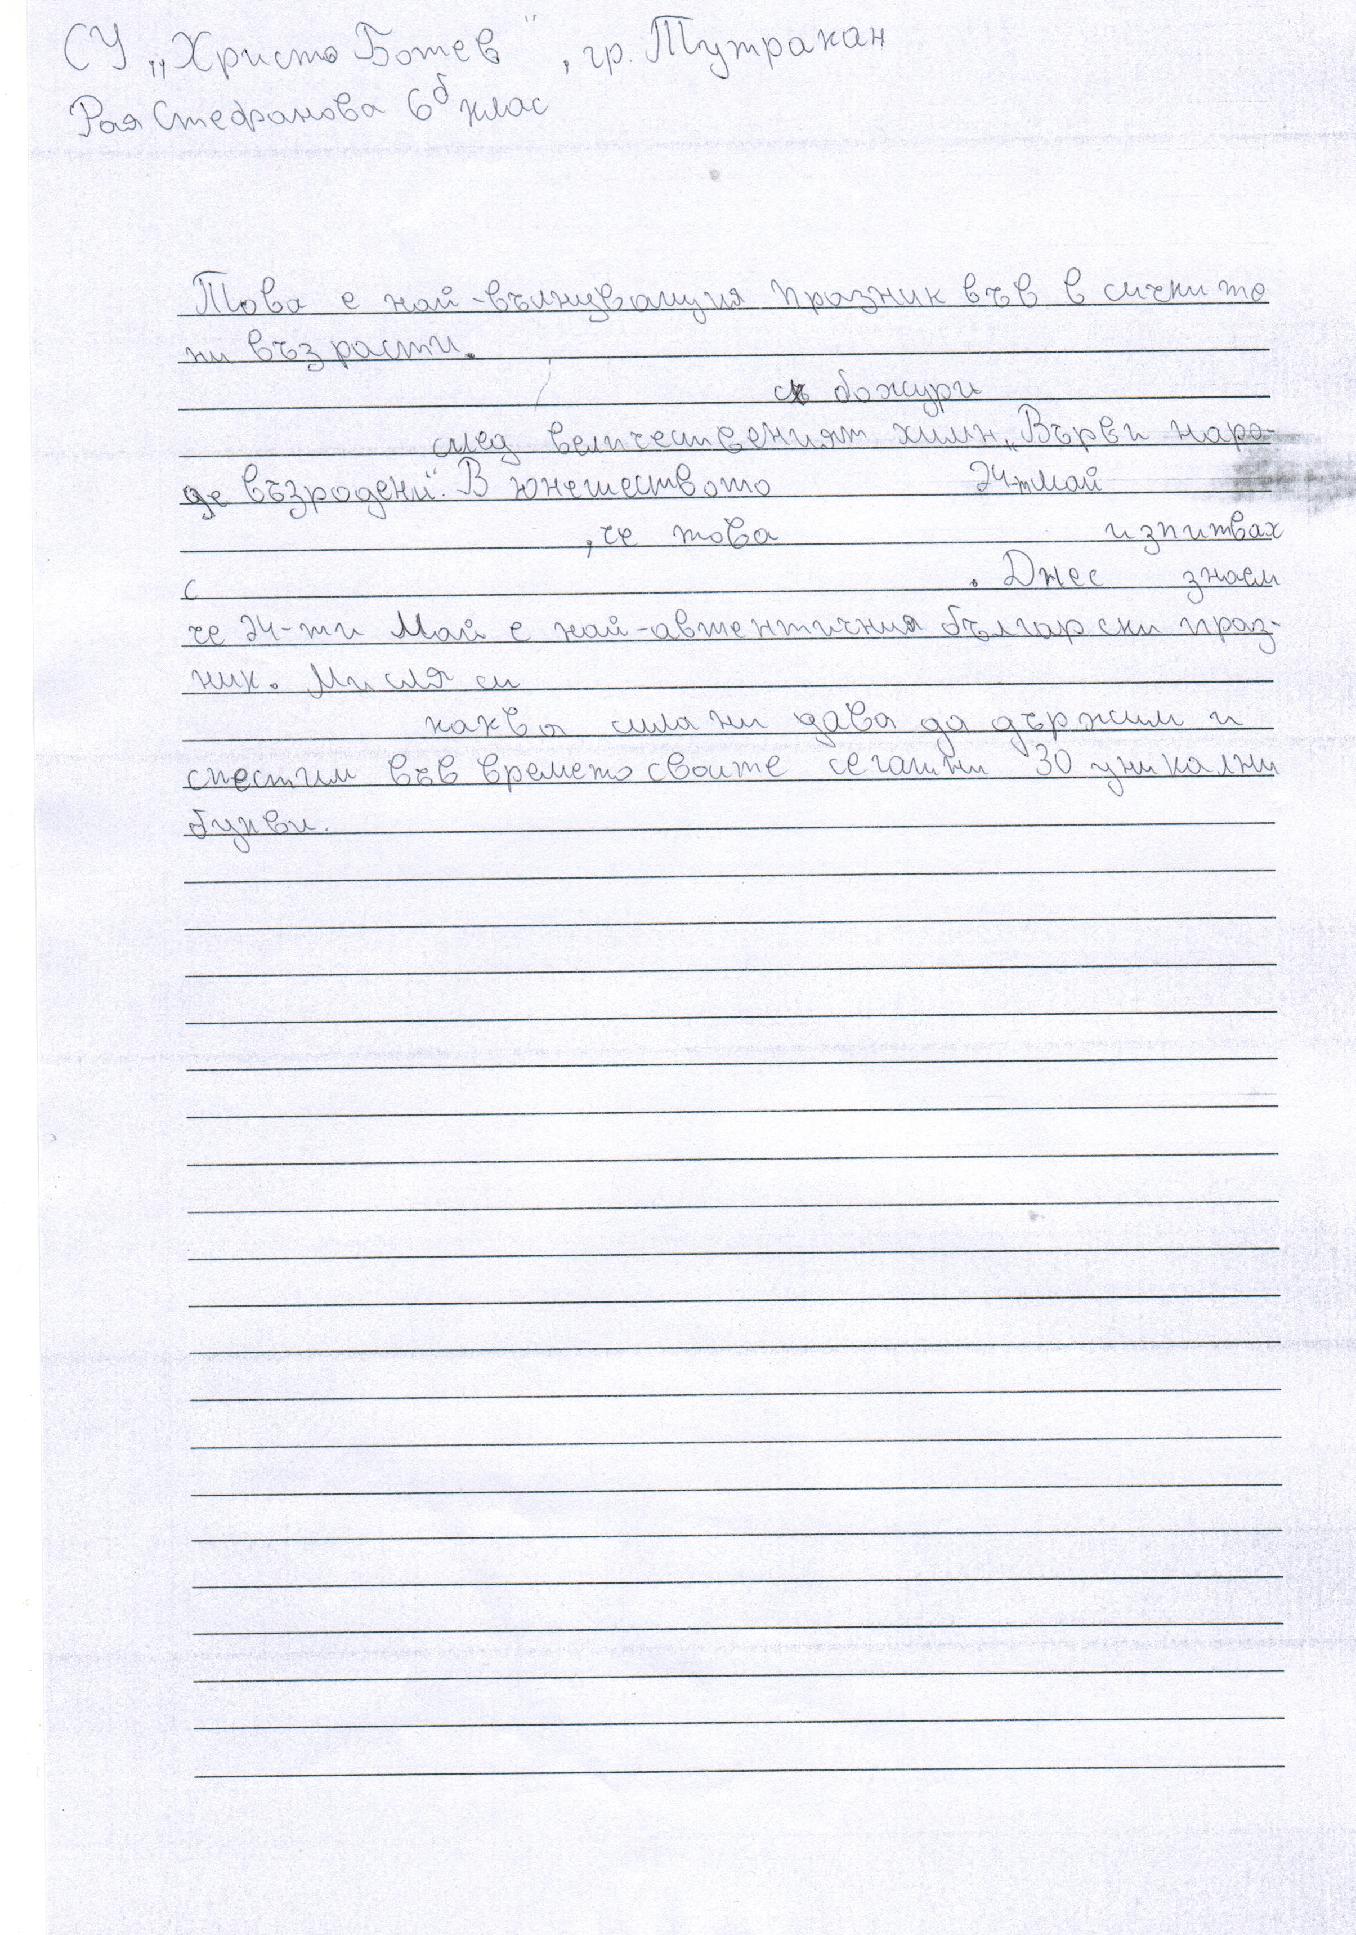 СУ „Христо Ботев“, гр. Тутракан
Рая Стефанова 6б клас
Това е най-вълнуващия празник във в сичките
ни възрасти.
с божури
след величественият химн „Върви наро-
де възродени“. В юнешеството 24-тмай
, че това изпитвах
с . Днес знаем
че 24-ти Май е най-автентичния български праз-
ник. Мисля си
каква сила ни дава да държим и
спестим във времето своите сегашни 30 уникални
букви.